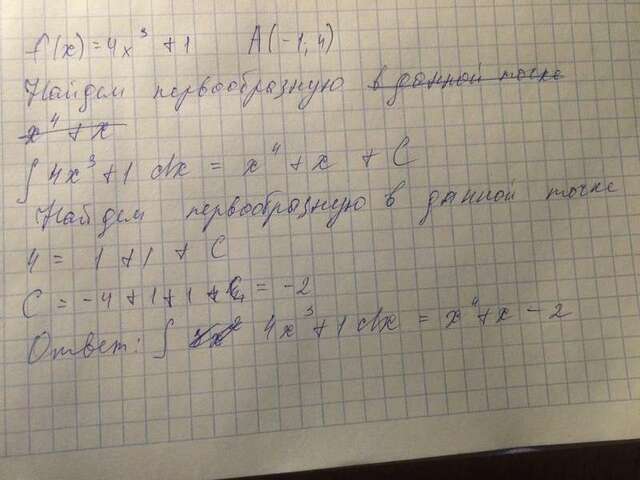 f(x) = 4x³ + 1 A(-1, 4)
Найдем первообразную в данной точке
x⁴ + x
∫ 4x³ + 1 dx = x⁴ + x + C
Найдем первообразную в данной точке
4 = 1 + 1 + C
C = -4 + 1 + 1 + = -2
Ответ: ∫ 4x³ + 1 dx = x⁴ + x - 2